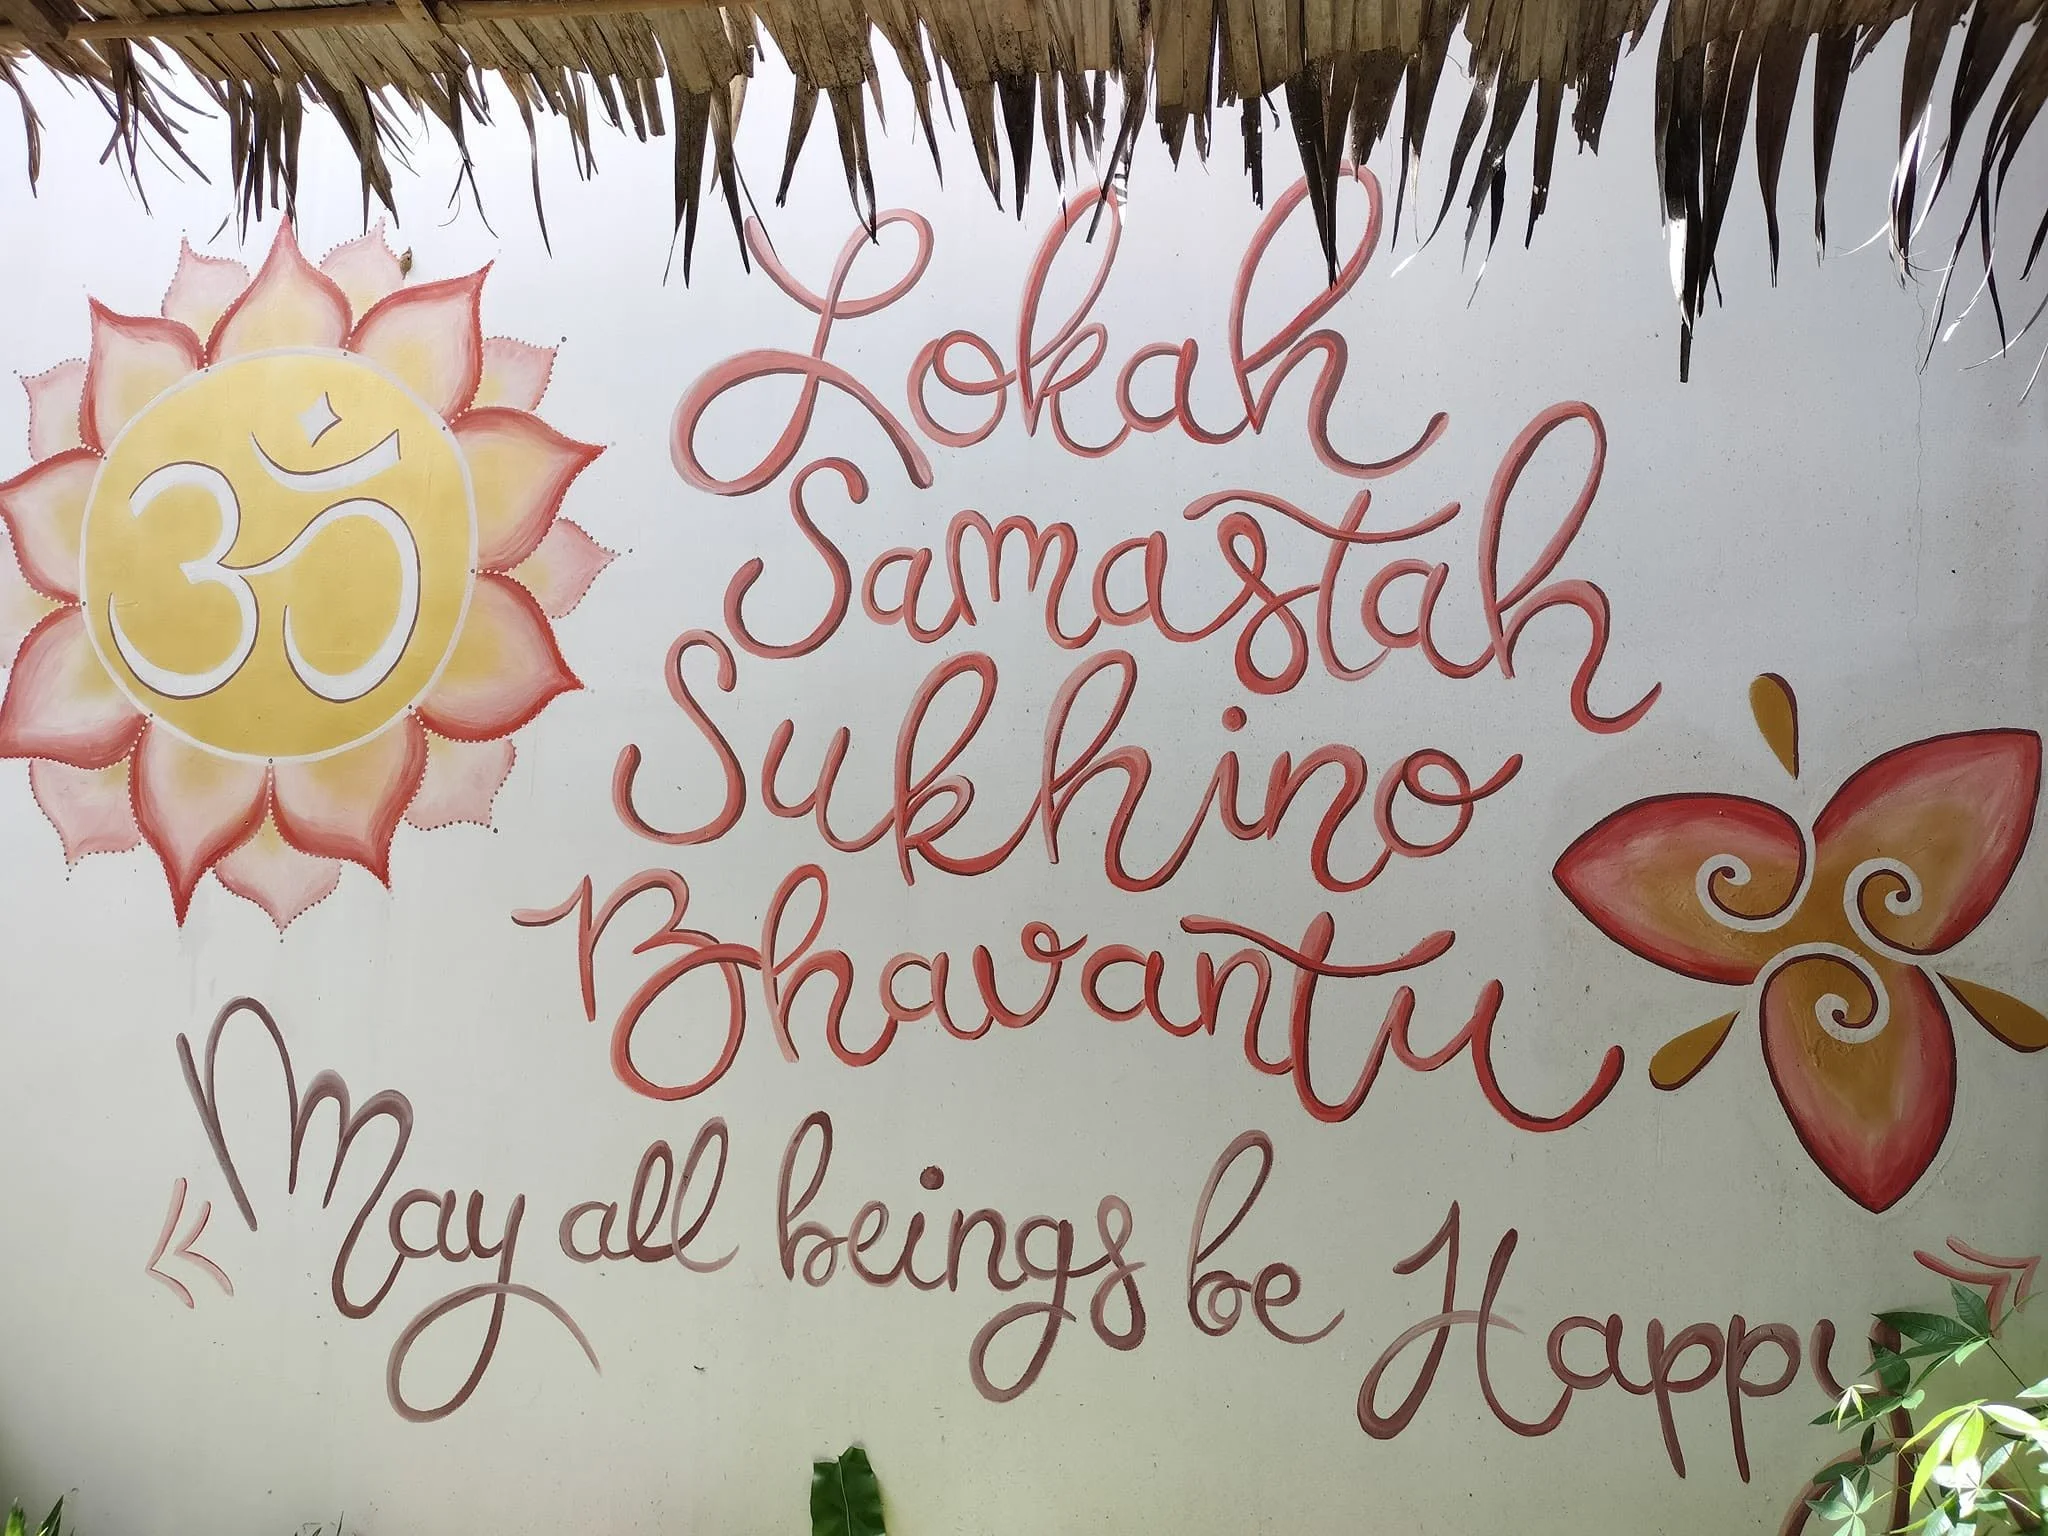 ॐ
Lokah
Samastah
Sukhino
Bhavantu
« May all beings be Happy »